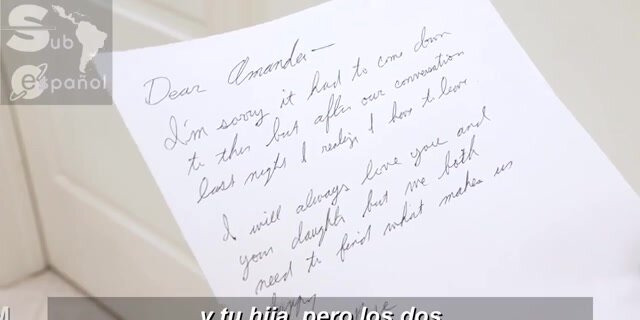 Sub
español
Dear Amanda—
I'm sorry it had to come down
to this but after our conversation
last night I realize I have to leave.
I will always love you and
your daughter but we both
need to find what makes us
happy
y tu hija, pero los dos